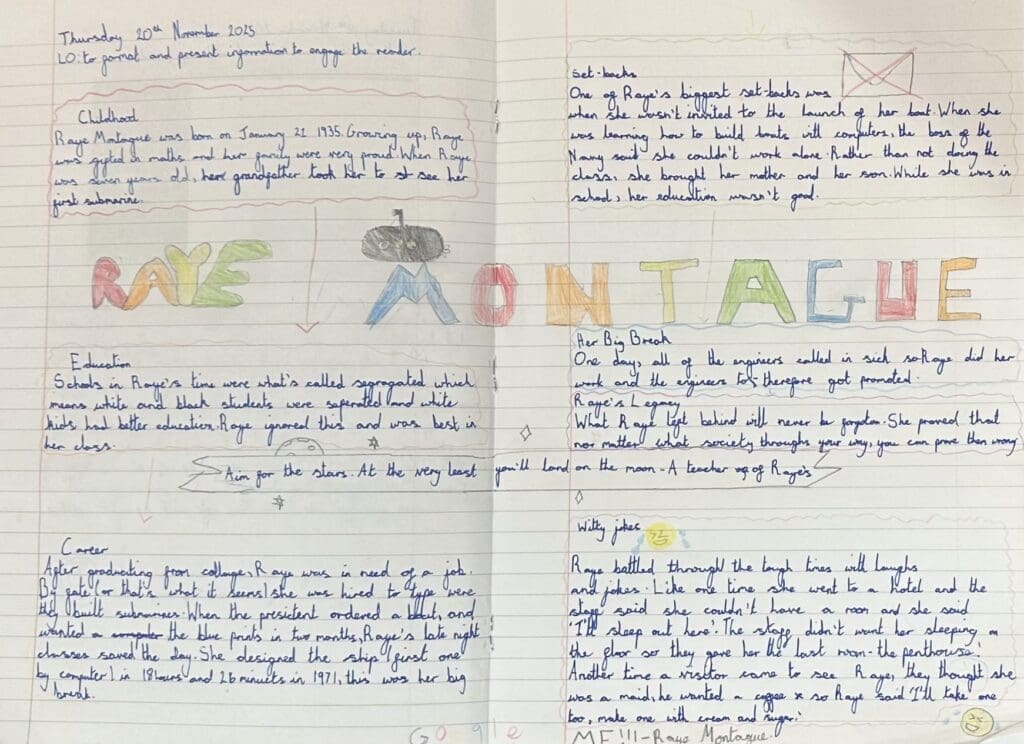 Thursday 20th November 2025
LO: to format and present information to engage the reader.
Childhood
Raye Montague was born on January 21 1935. Growing up, Raye
was gifted in maths and her family were very proud. When Raye
was seven years old, here grandfather took her to st see her
first submarine.
RAYE MONTAGUE
Education
Schools in Raye's time were what's called segragated which
means white and black students were seperated and white
kids had better education. Raye ignored this and was best in
her class.
Aim for the stars. At the very least you'll land on the moon - A teacher of Raye's
Career
After graduating from collage, Raye was in need of a job.
By fate (or that's what it seems) she was hired to type were
they built submarines. When the president ordered a boat, and
wanted a computer the blue prints in two months, Raye's late night
classes saved the day. She designed the ship (first one
by computer) in 18 hours and 26 minuets in 1971, this was her big
break.
Set-backs
One of Raye's biggest set-backs was
when she wasn't invited to the launch of her boat. When she
was learning how to build boats with computers, the boss of the
Navy said she couldn't work alone. Rather than not doing the
class, she brought her mother and her son. While she was in
school, her education wasn't good.
Her Big Break
One day, all of the engineers called in sick so Raye did her
work and the engineers to, therefore got promoted.
Raye's Legacy
What Raye left behind will never be forgotten. She proved that
nor matter what society throughs your way, you can prove then wrong
Witty jokes
Raye battled through the tough times with laughs
and jokes. Like one time she went to a hotel and the
staff said she couldn't have a room and she said
'I'll sleep out here'. The staff didn't want her sleeping on
the floor so they gave her the last room - the penthouse!
Another time a visitor came to see Raye, they thought she
was a maid, he wanted a coffee so Raye said 'I'll take one
too, make one with cream and sugar.'
ME!!! - Raye Montague.
Google